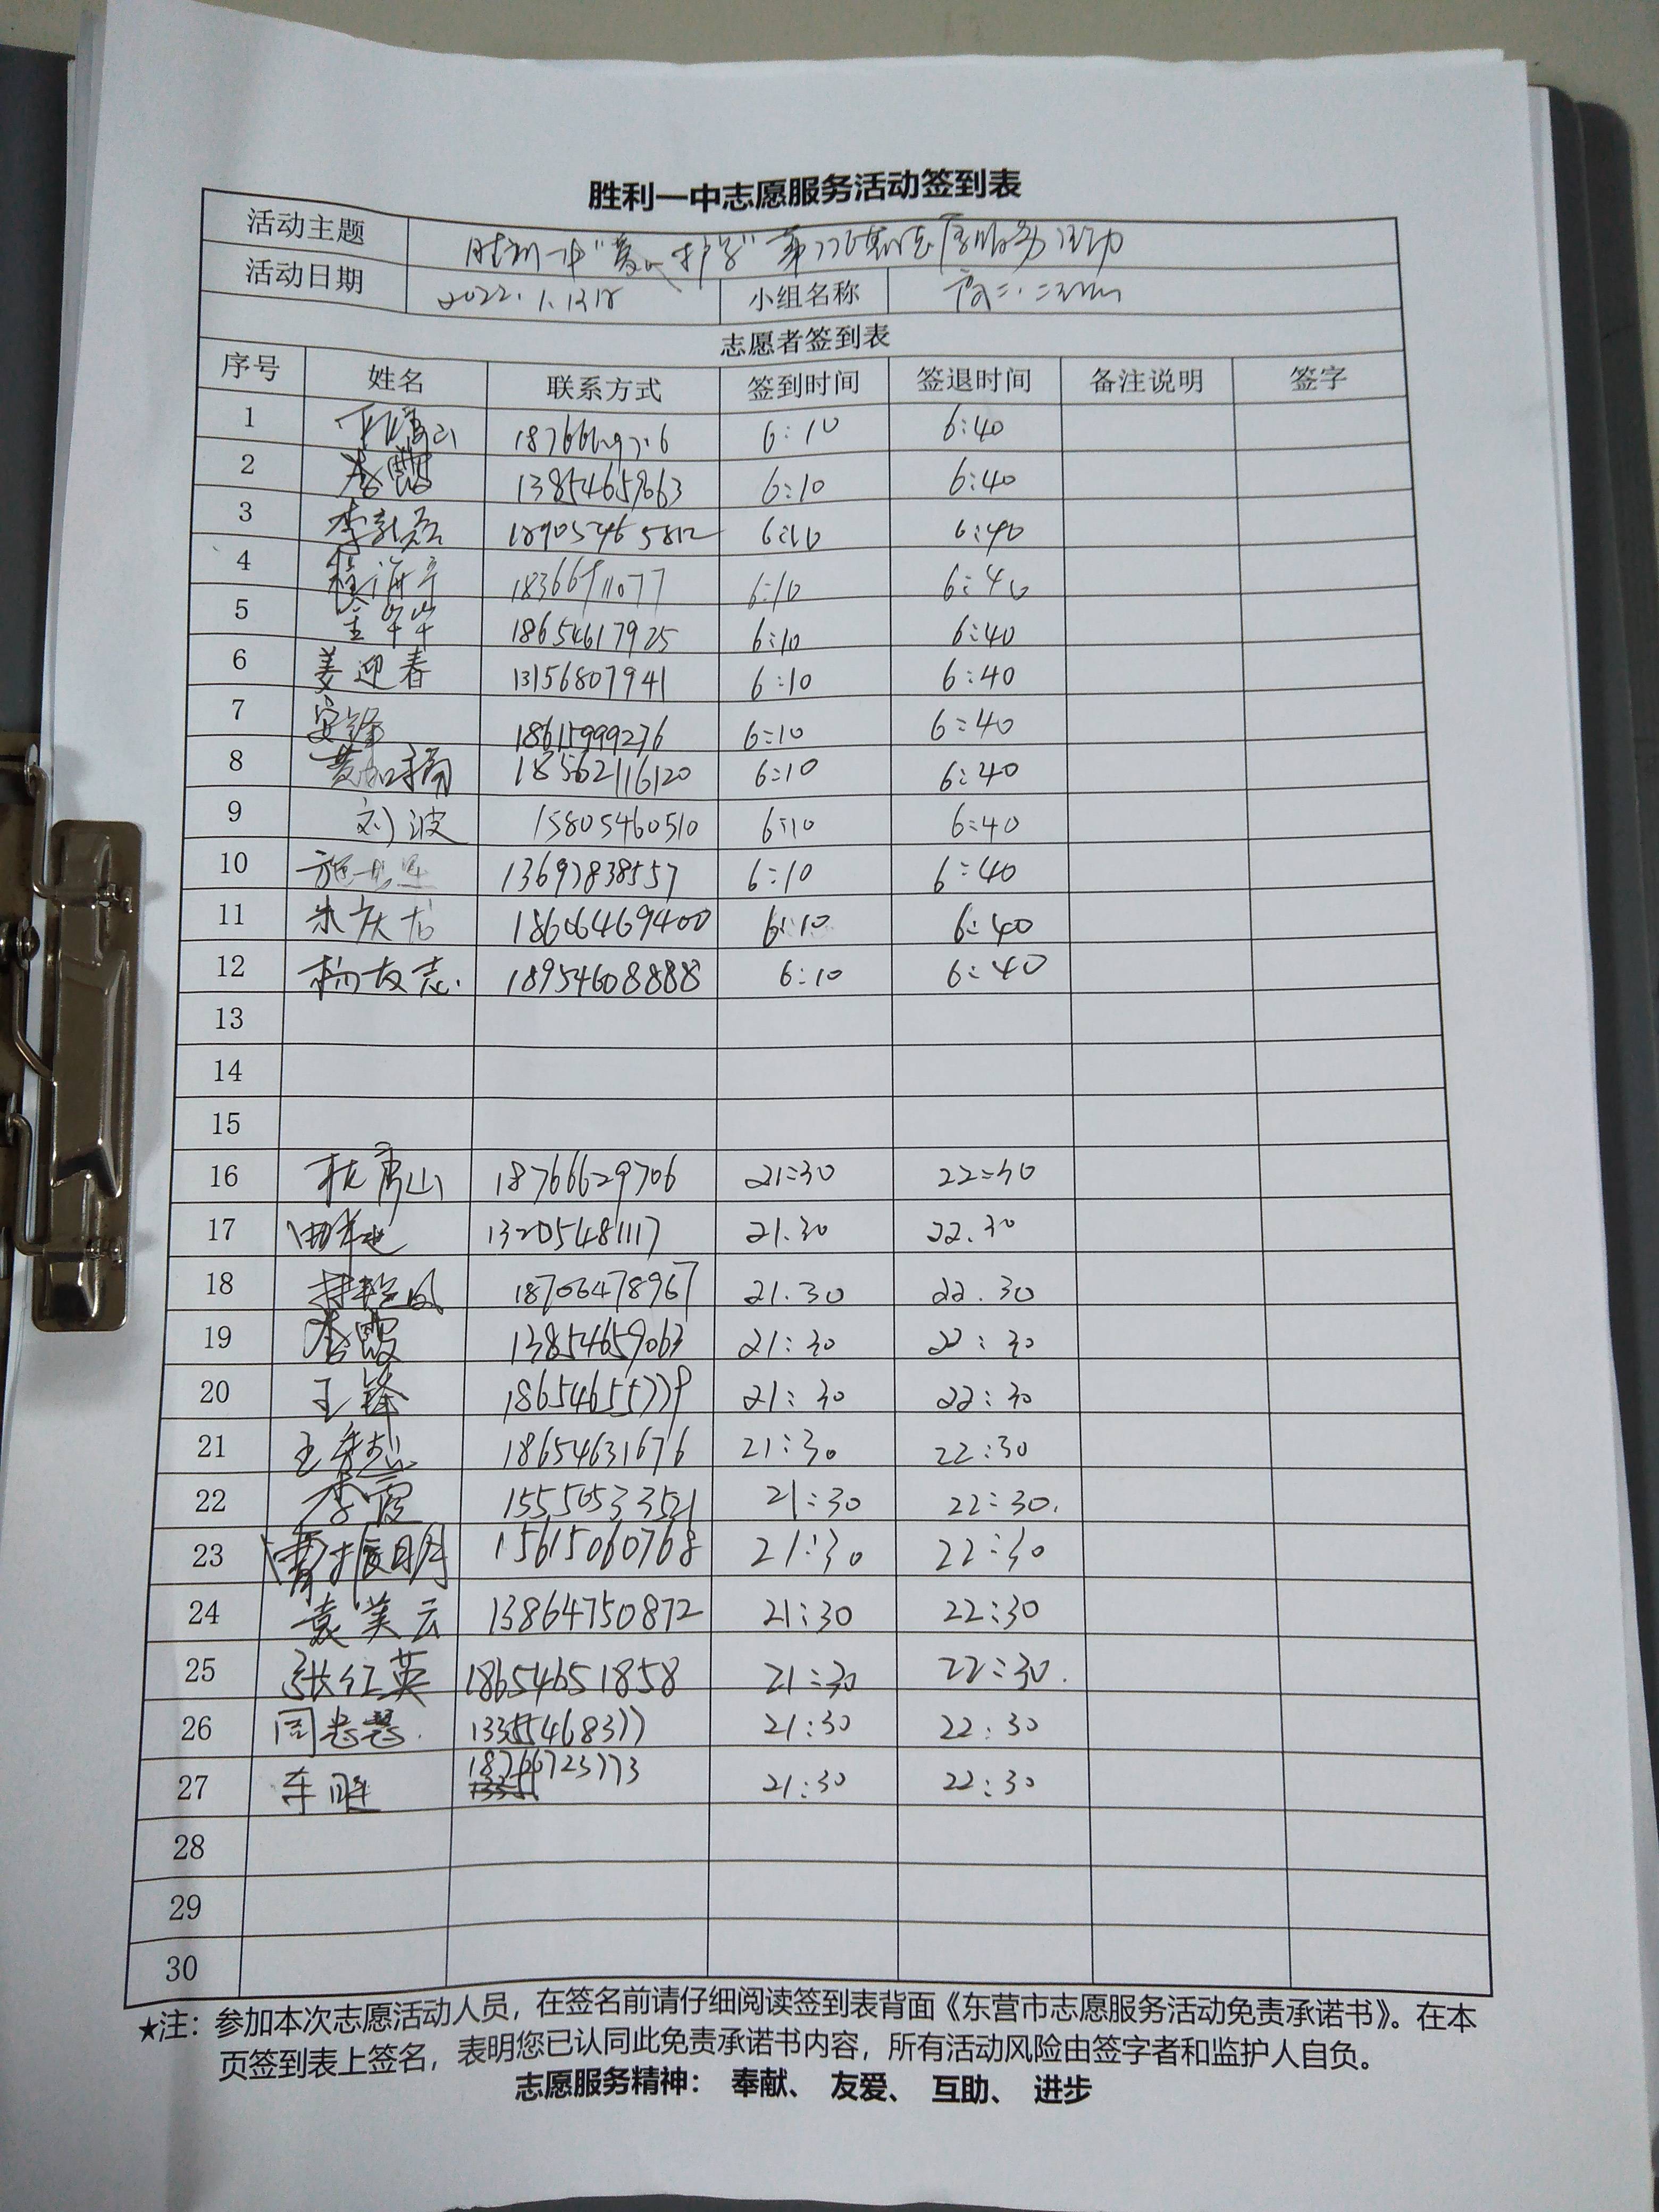 胜利一中志愿服务活动签到表
活动主题 胜利一中"爱心护学"第 期志愿服务活动
活动日期 2022.1. 小组名称 高二.
志愿者签到表
序号 姓名 联系方式 签到时间 签退时间 备注说明 签字
1 6:10 6:40
2 李霞 13854659063 6:10 6:40
3 18905465812 6:10 6:40
4 程海亭 6:10 6:40
5 18654617925 6:10 6:40
6 姜迎春 13156807941 6:10 6:40
7 安锋 18615999276 6:10 6:40
8 18562116120 6:10 6:40
9 刘波 15805460510 6:10 6:40
10 13697838557 6:10 6:40
11 朱庆 18606469400 6:10 6:40
12 杨友志. 18954608888 6:10 6:40
13
14
15
16 18766629706 21:30 22:30
17 13205481117 21.30 22.30
18 18706478967 21.30 22.30
19 李霞 13854659063 21:30 22:30
20 王锋 18654655779 21:30 22:30
21 18654631676 21:30 22:30
22 李霞 15550533521 21:30 22:30.
23 曹振明 15615060768 21:30 22:30
24 袁美云 13864750872 21:30 22:30
25 张红英 18654651858 21:30 22:30.
26 13355468377 21:30 22:30
27 车胜 18766723773 21:30 22:30
28
29
30
★注：参加本次志愿活动人员，在签名前请仔细阅读签到表背面《东营市志愿服务活动免责承诺书》。在本
页签到表上签名，表明您已认同此免责承诺书内容，所有活动风险由签字者和监护人自负。
志愿服务精神： 奉献、 友爱、 互助、 进步